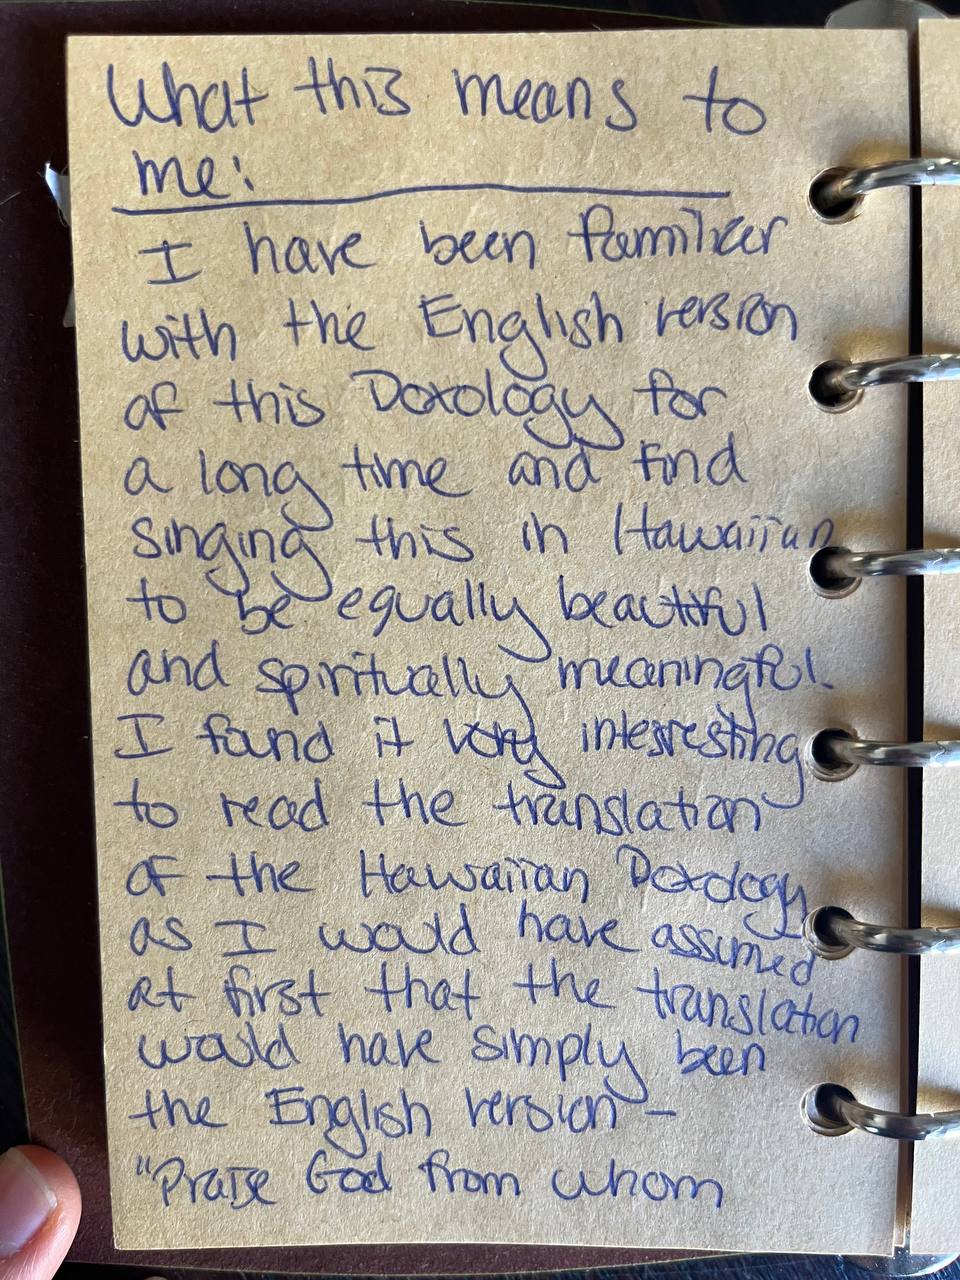 What this means to
me:
I have been familiar
with the English version
of this Doxology for
a long time and find
singing this in Hawaiian
to be equally beautiful
and spiritually meaningful.
I found it very interesting
to read the translation
of the Hawaiian Doxology
as I would have assumed
at first that the translation
would have simply been
the English version –
"Praise God from whom